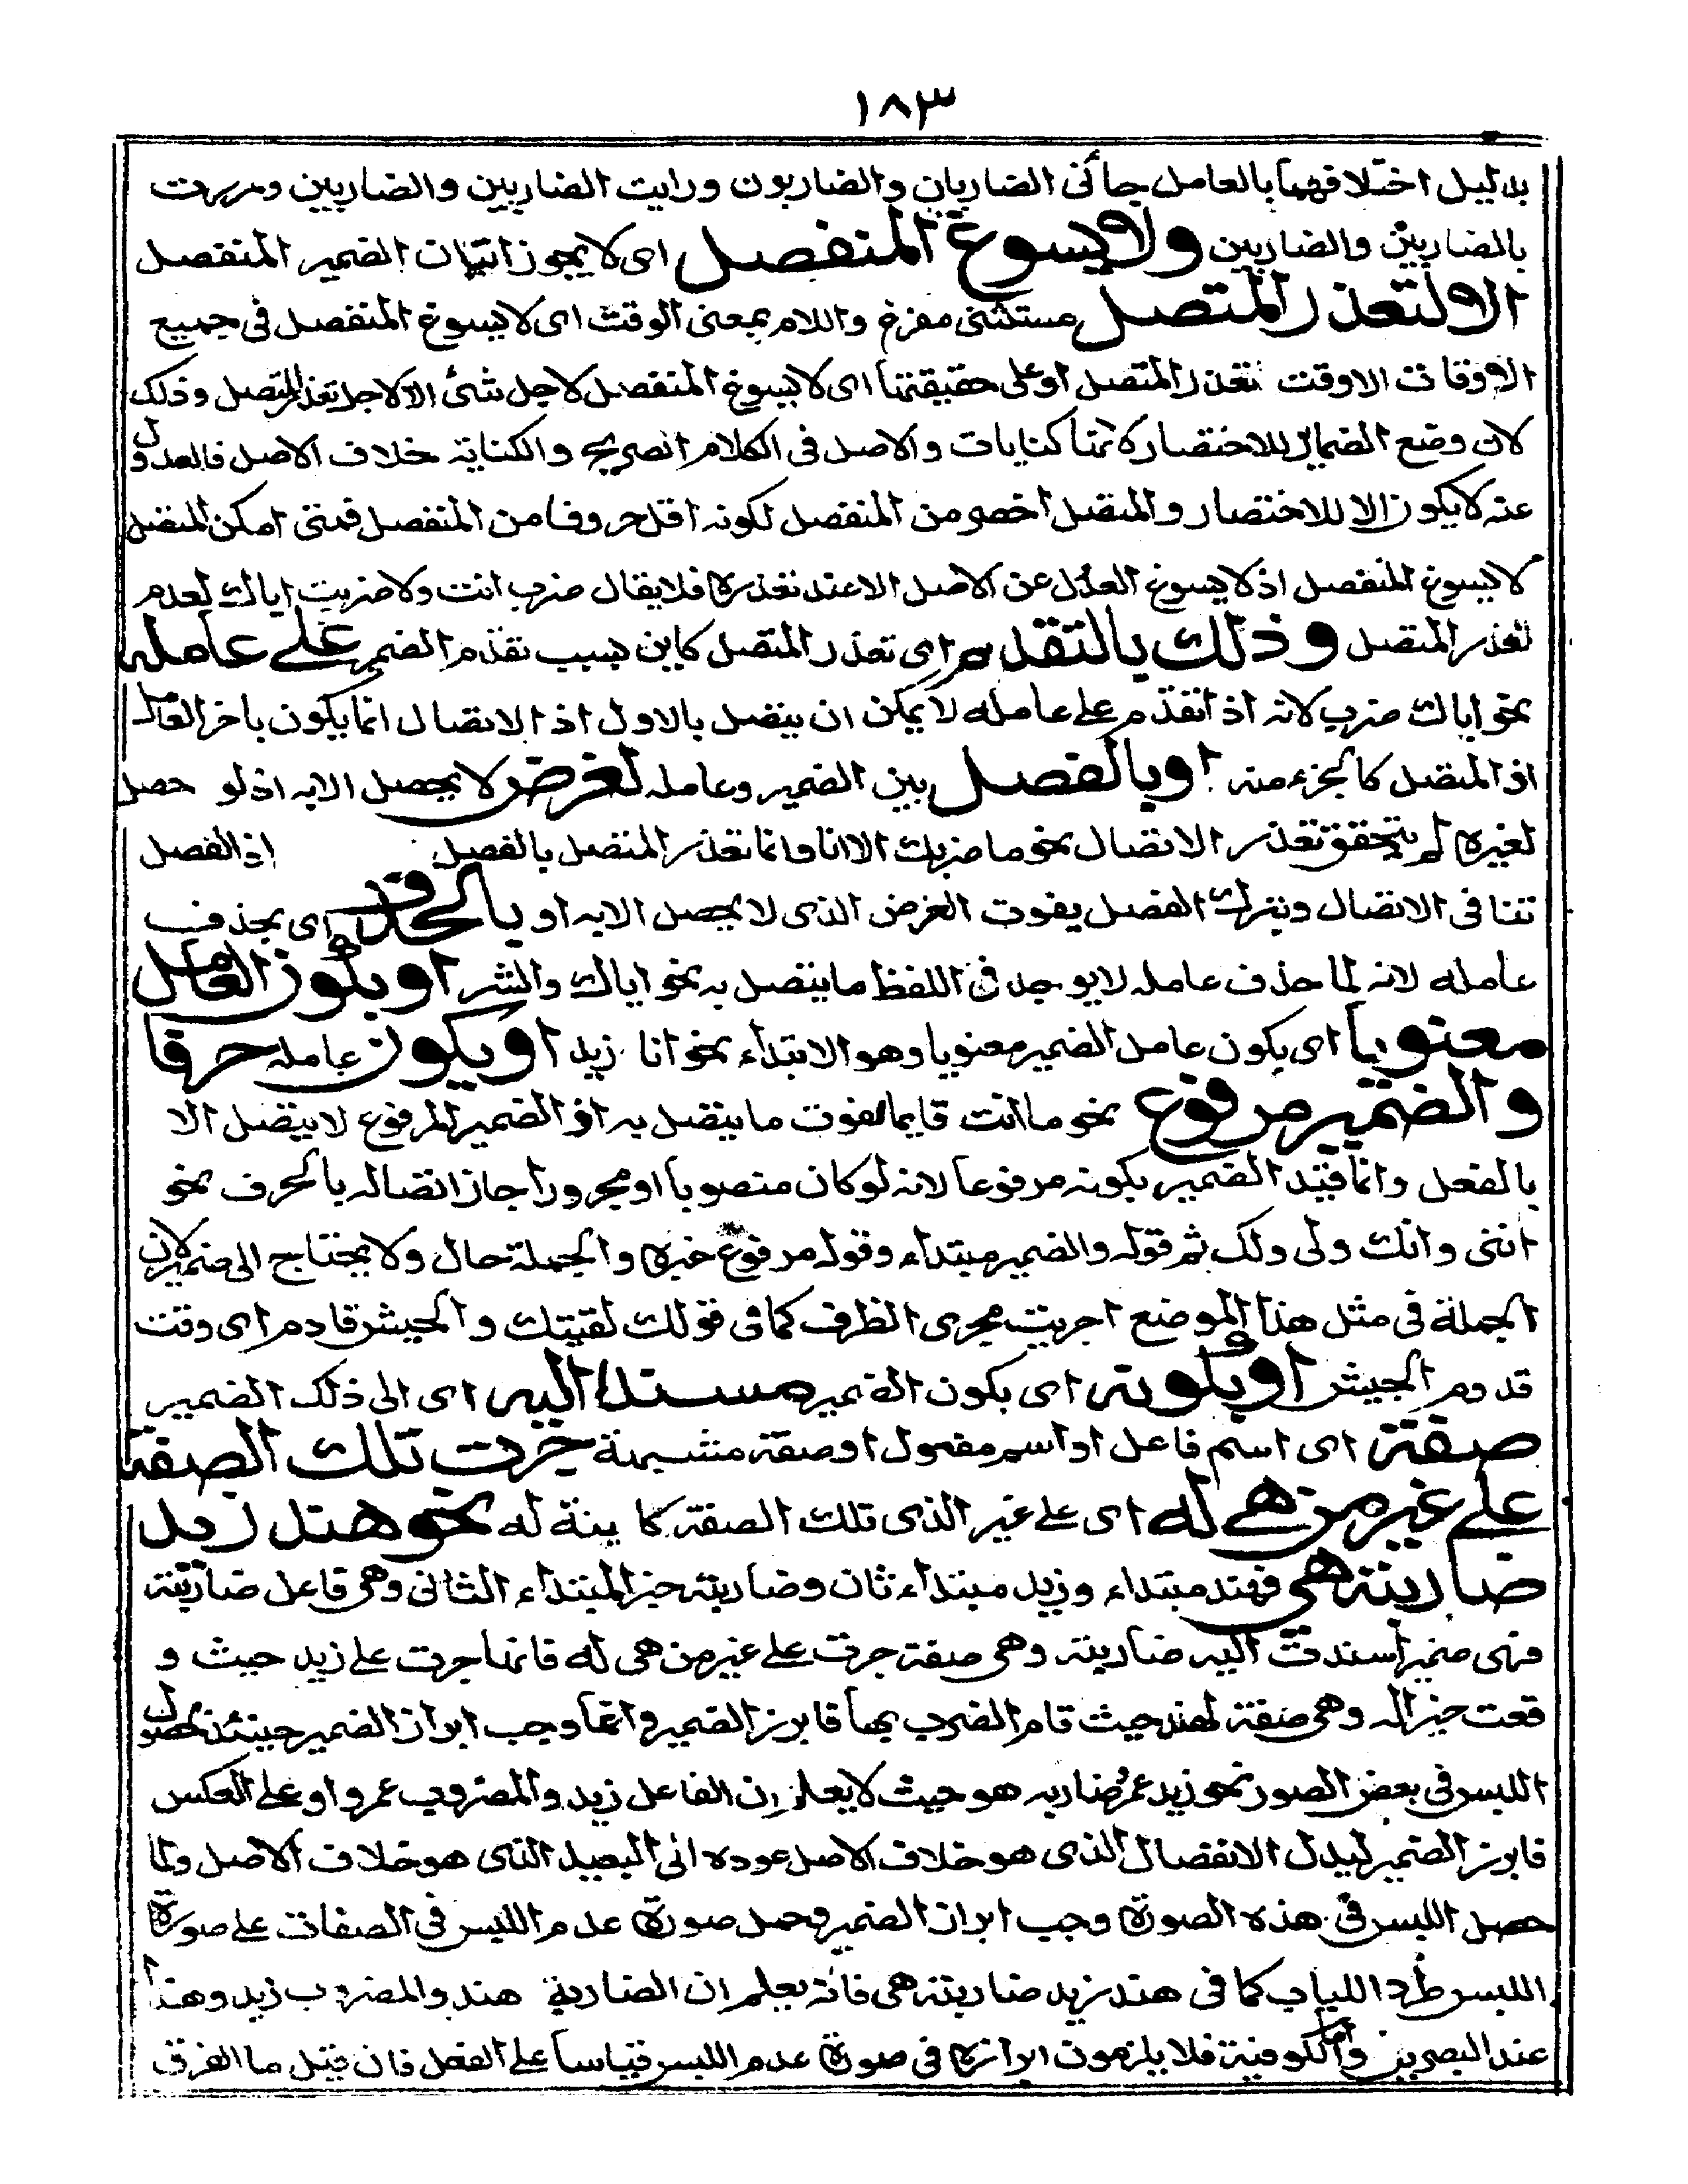 ١٨٣
بدليل اختلافهما بالعامل جائنى الضاربان والضاربون ورايت الضاربين والضاربين ومررت
بالضاربين والضاربين ولا يسوغ المنفصل اى لا يجوز اتيان الضمير المنفصل
الا لتعذر المتصل مستثنى مفرغ واللام بمعنى الوقت اى لا يسوغ المنفصل فى جميع
الاوقات الا وقت تعذر المتصل او على حقيقتها اى لا يسوغ المنفصل لاجل شئ الا لاجل تعذر المتصل وذلك
لان وضع الضمائر للاختصار لانها كنايات والاصل فى الكلام الصريح والكناية خلاف الاصل فالعدول
عنه لا يكون الا للاختصار والمتصل اخصر من المنفصل لكونه اقل حروفا من المنفصل فمتى امكن المتصل
لا يسوغ المنفصل اذ لا يسوغ العدل عن الاصل الا عند تعذره فلا يقال ضرب انت ولا ضربت اياك لعدم
تعذر المتصل وذلك بالتقدم اى تعذر المتصل كاين بسبب تقدم الضمير على عامله
نحو اياك ضرب لانه اذا تقدم على عامله لا يمكن ان يتصل بالاول اذ الاتصال انما يكون باخر العامل
اذ المتصل كالجزء منه او بالفصل بين الضمير وعامله لغرض لا يحصل الا به اذ لو حصل
لغيره لم يتحقق تعذر الاتصال نحو ما ضربك الا انا وانما تعذر المتصل بالفصل اذ الفصل
تنافى الاتصال وبترك الفصل يفوت الغرض الذى لا يحصل الا به او بالحذف اى بحذف
عامله لانه لما حذف عامله لا يوجد فى اللفظ ما يتصل به نحو اياك والشر او بكون العامل
معنويا اى يكون عامل الضمير معنويا وهو الابتداء نحو انا زيد او يكون عامله حرفا
والضمير مرفوع نحو ما انت قايما لفوت ما يتصل به اذ الضمير المرفوع لا يتصل الا
بالفعل وانما قيد الضمير بكونه مرفوعا لانه لو كان منصوبا او مجرورا جاز اتصاله بالحرف نحو
اننى وانك ولى ولك ثم قوله والضمير مبتداء وقوله مرفوع خبره والجملة حال ولا يحتاج الى ضمير لان
الجملة فى مثل هذا الموضع اجريت مجرى الظرف كما فى قولك لقيتك والجيش قادم اى وقت
قدوم الجيش او بكونه اى بكون الضمير مسندا اليه اى الى ذلك الضمير
صفة اى اسم فاعل او اسم مفعول او صفة مشبهة جرت تلك الصفة
على غير من هى له اى على غير الذى تلك الصفة كاينة له نحو هند زيد
ضاربته هى فهند مبتداء وزيد مبتداء ثان وضاربته خبر المبتداء الثانى وهى فاعل ضاربته
فهى ضمير اسندت اليه ضاربته وهى صفة جرت على غير من هى له فانها جرت على زيد حيث و
قعت خبرا له وهى صفة لهند حيث قام الضرب بها فابرز الضمير وانما وجب ابراز الضمير حينئذ لحصول
اللبس فى بعض الصور نحو زيد عمرو ضاربه هو حيث لا يعلم ان الفاعل زيد والمضروب عمرو او على العكس
فابرز الضمير ليدل الانفصال الذى هو خلاف الاصل عوده الى البعيد الذى هو خلاف الاصل ولما
حصل اللبس فى هذه الصورة وجب ابراز الضمير وحمل صورة عدم اللبس فى الصفات على صورة
اللبس طرد اللباب كما فى هند زيد ضاربته هى فانه يعلم ان الضاربة هند والمضروب زيد وهذا
عند البصريين واما الكوفية فلا يلزمون ابرازه فى صورة عدم اللبس قياسا على الفعل فان قيل ما الفرق